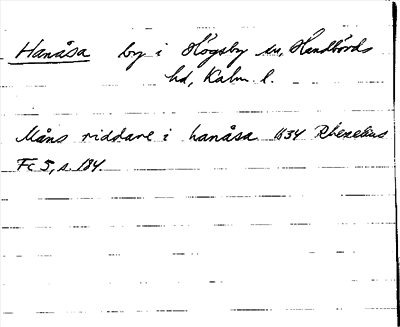 Hanåsa by i Högsby sn, Handbörds
hd, Kalm. l.
Måns riddare i hanåsa 1634 Rhezelius
Fc 5, s. 134.